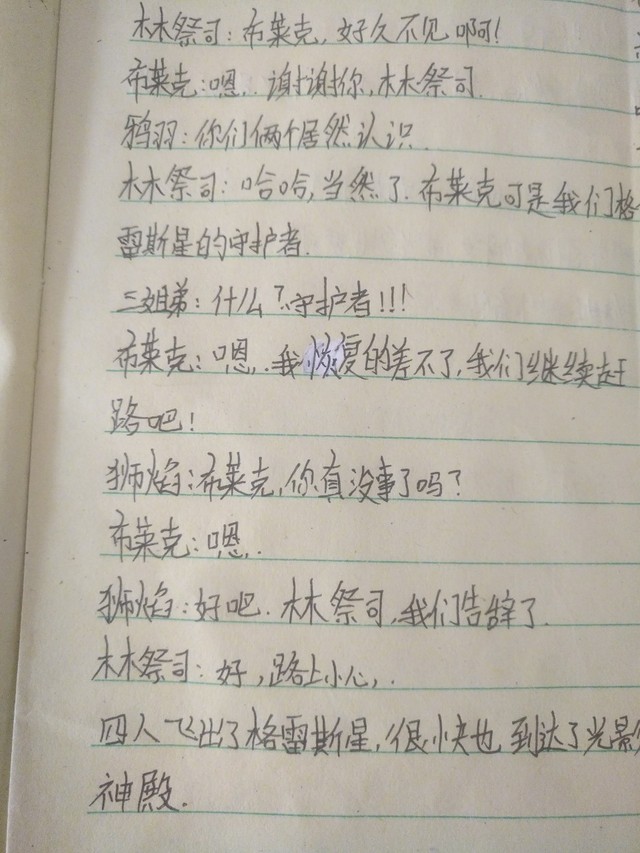 木木祭司：布莱克，好久不见啊！
布莱克：嗯．．谢谢你，木木祭司．
鸦羽：你们俩个居然认识．
木木祭司：哈哈，当然了．布莱克可是我们格
雷斯星的守护者．
三姐弟：什么？守护者！！！
布莱克：嗯．．我恢复的差不了，我们继续赶
路吧！
狮焰：布莱克，你真没事了吗？
布莱克：嗯．．
狮焰：好吧．木木祭司，我们告辞了．
木木祭司：好，路上小心，．
四人飞出了格雷斯星，很快也到达了光影
神殿．